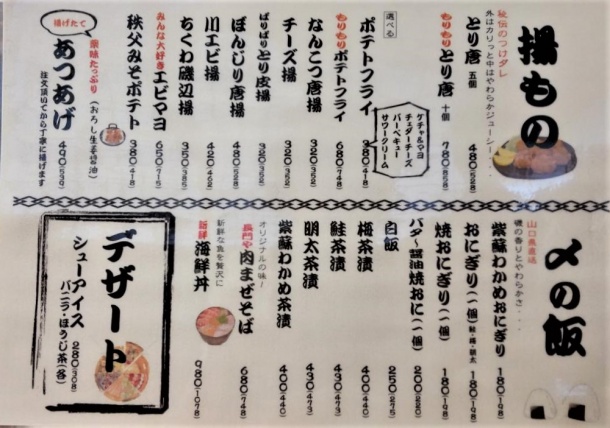 揚もの
秘伝のつけダレ
外はカリっと中はやわらかジューシー・・・
とり唐 五個 480(528)
もりもりとり唐 十個 780(858)
選べる
ポテトフライ 380(418)
ケチャ&マヨ
チェダーチーズ
バーベキュー
サワークリーム
もりもりポテトフライ 680(748)
なんこつ唐揚 320(352)
チーズ揚 320(352)
ぱりぱりとり皮揚 320(352)
ぼんじり唐揚 480(528)
川エビ揚 420(462)
ちくわ磯辺揚 350(385)
みんな大好きエビマヨ 650(715)
秩父みそポテト 380(418)
揚げたて
薬味たっぷり(おろし生姜醤油)
あつあげ 490(539)
注文頂いてから丁寧に揚げます
〆の飯
山口県直送
磯の香りとやわらかさ・・・
紫蘇わかめおにぎり 180(198)
おにぎり(一個)鮭・梅・明太 180(198)
焼おにぎり(一個) 180(198)
バタ〜醤油焼おに(一個) 200(220)
白飯 250(275)
梅茶漬 400(440)
鮭茶漬 430(473)
明太茶漬 430(473)
紫蘇わかめ茶漬 400(440)
オリジナルの味〜
長門や肉まぜそば 680(748)
新鮮な魚を贅沢に
海鮮丼 980(1078)
デザート
シューアイス 280(308)
バニラ・ほうじ茶(各)